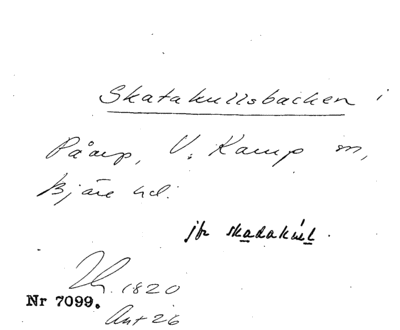 Skatakullsbacken i
Påarp, V. Karup sn,
Bjäre hd.
jfr skadakúlt.
1820
Nr 7099.
Ant 26